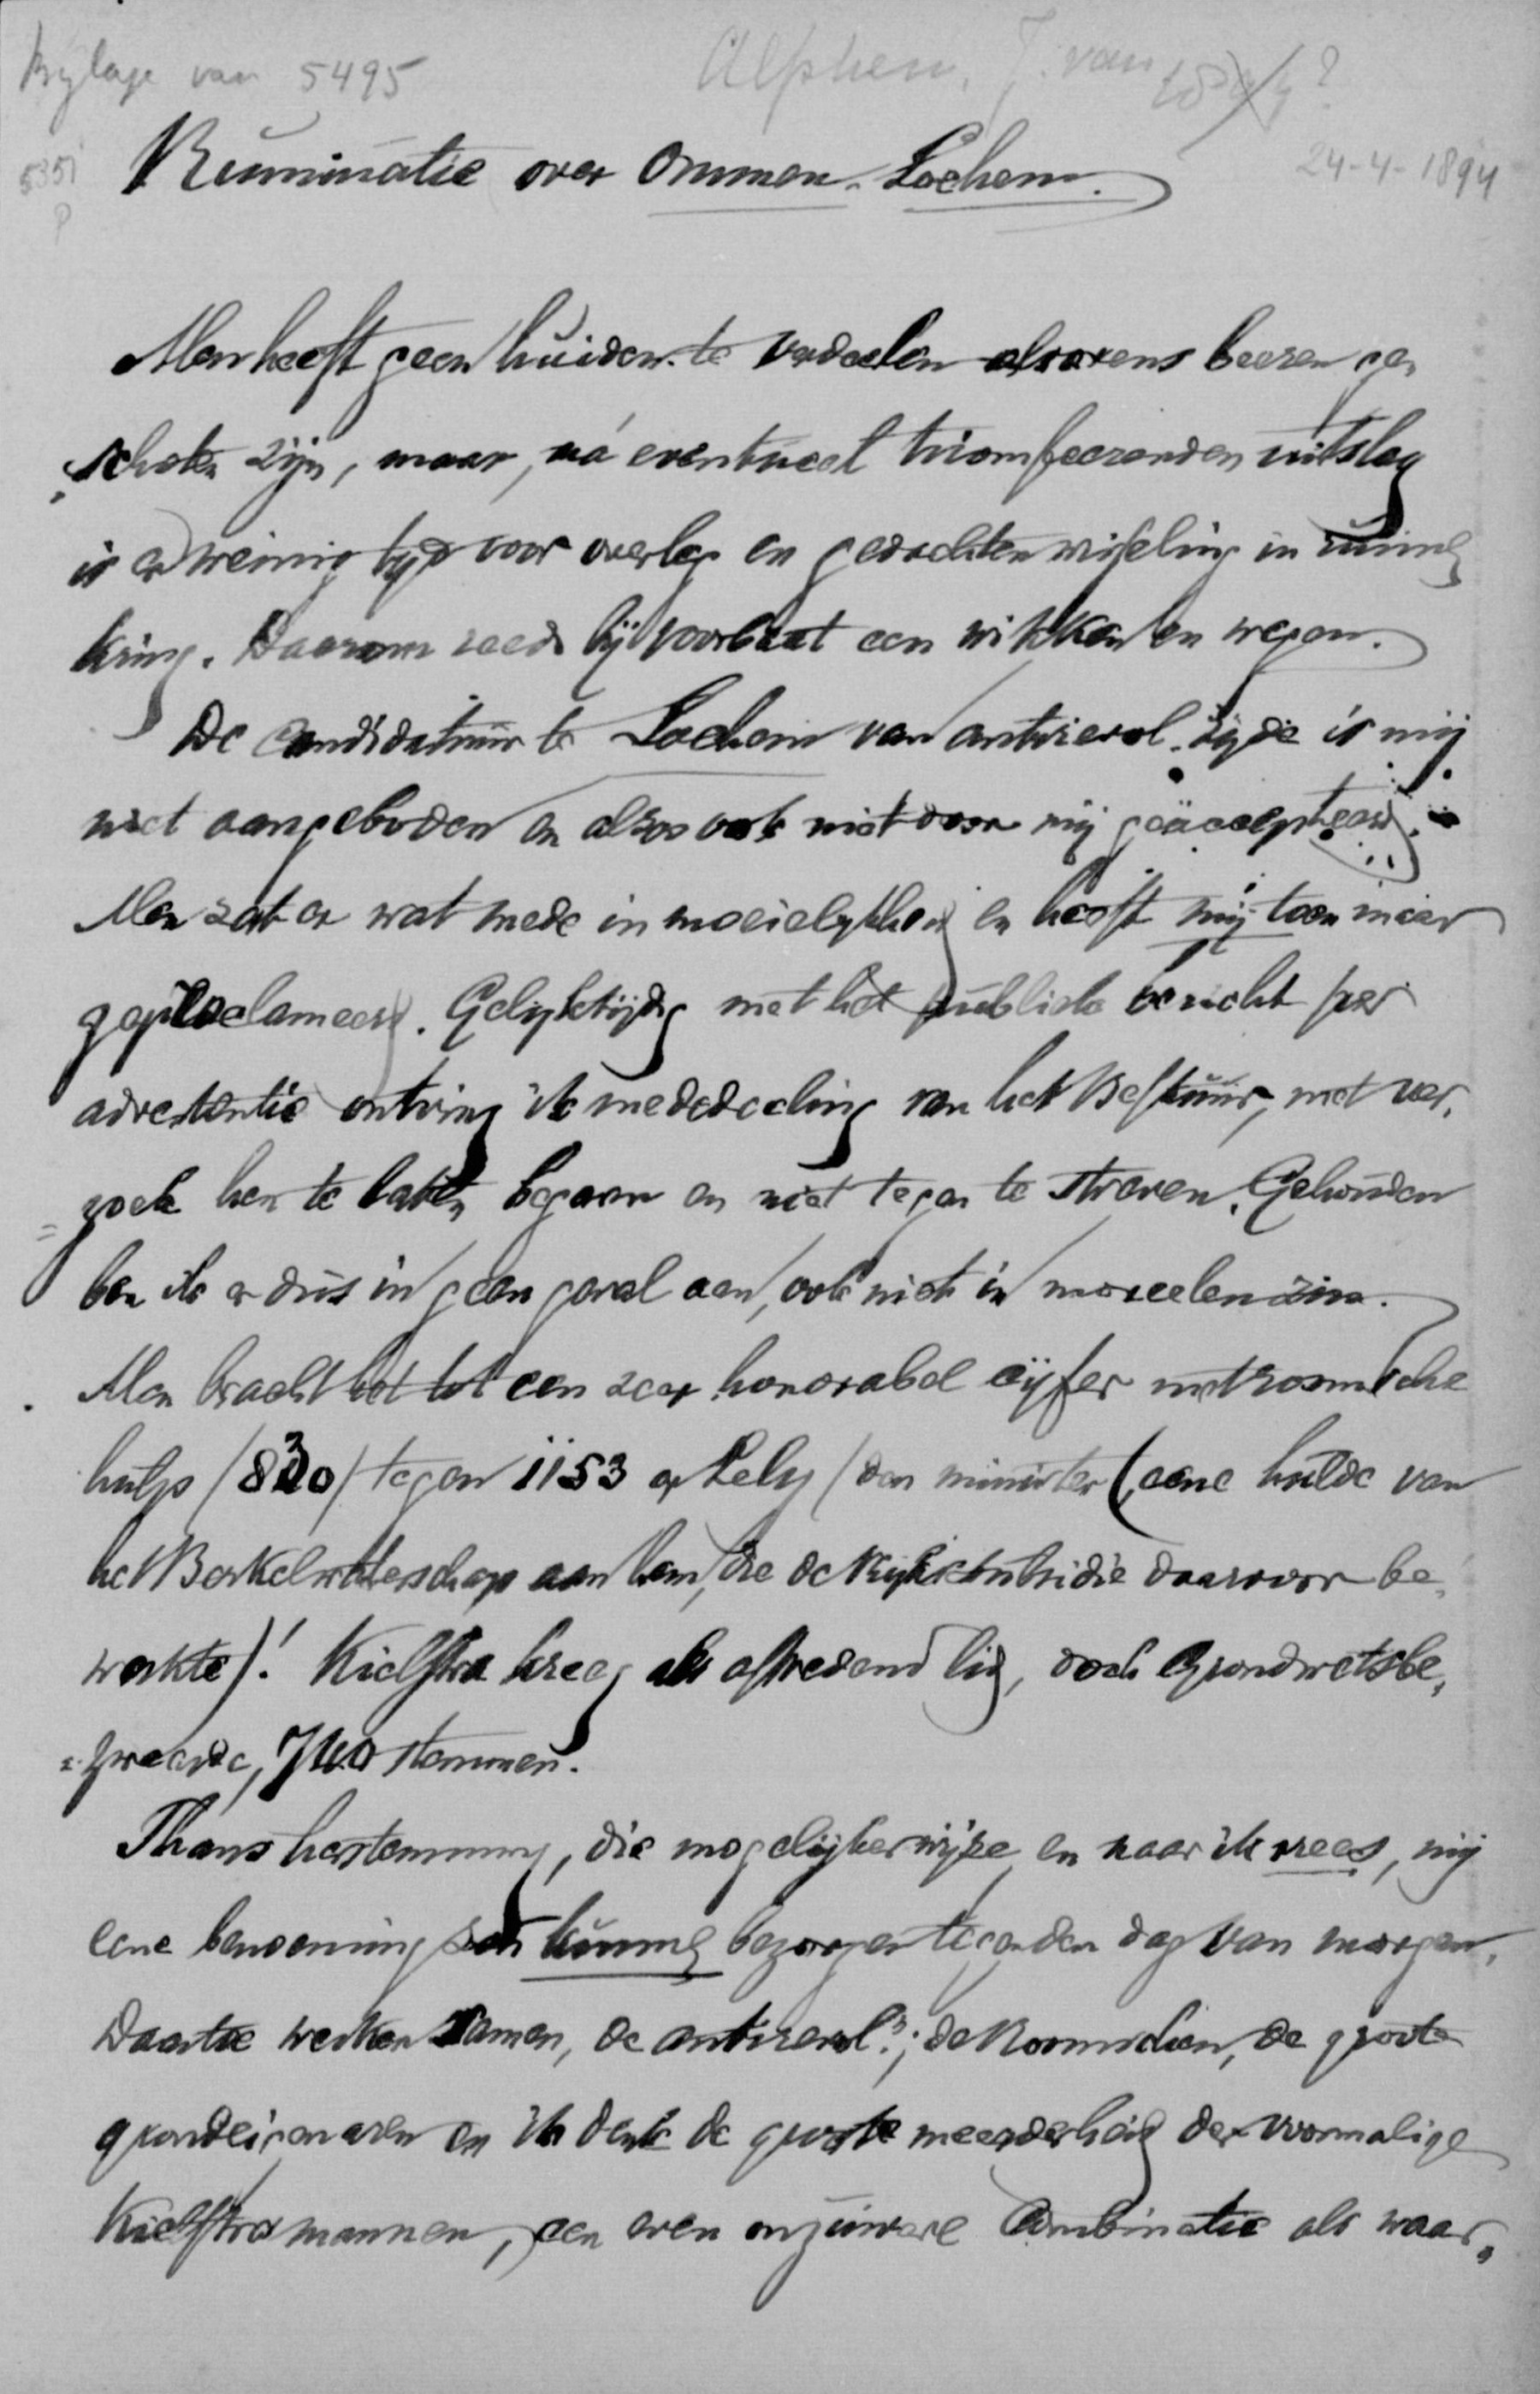 Bijlage van 5495
Alphen, J. van
5351
24-4-1894
Ruminatie over Ommen-Lochem.
Men heeft geen huiden te verdeelen alvorens beeren ge-
schoten zijn, maar, ná eventueel triomfeerenden uitslag
is er weinig tijd voor overleg en gedachtenwisseling in ruimen
kring. Daarom reeds bij voorbaat een wikken en wegen.
De Candidatuur te Lochem van antirevol. zijde is mij
niet aangeboden en alzoo ook niet door mij geäccepteerd.
Men zat er wat mede in moeielykheid en heeft mij toen maar
geproclameerd. Gelijktijdig met het publiek bericht per
advertentie ontving ik mededeeling van het Bestuur, met ver-
zoek hen te laten begaan en niet tegen te streven. Gebonden
ben ik er dus in geen geval aan, ook niet in moreelen zin.
Men bracht het tot een zeer honorabel cijfer met roomsche
hulp (830) tegen 1153 op Lely (den minister (eene hulde van
het Berkelwaterschap aan hem, die de Rijkssubsidie daarvoor be-
werkte)! Kielstra kreeg als aftredend lid, doch Grondwetsbe-
zwaarde, 740 stemmen.
Thans herstemming, die mogelijkerwijze en naar ik vrees, mij
eene benoeming zou kunnen bezorgen tegen den dag van morgen.
Daartoe werken samen, de antirevol.n; de Roomschen, de groote
grondeigenaren en ik denk de groote meerderheid der voormalige
Kielstramannen, een even onzuivere Combinatie als waar-